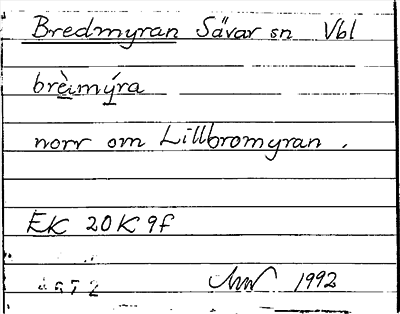 Bredmyran Sävar sn Vbl
brèimýra
norr om Lillbromyran.
EK 20K 9f
1992